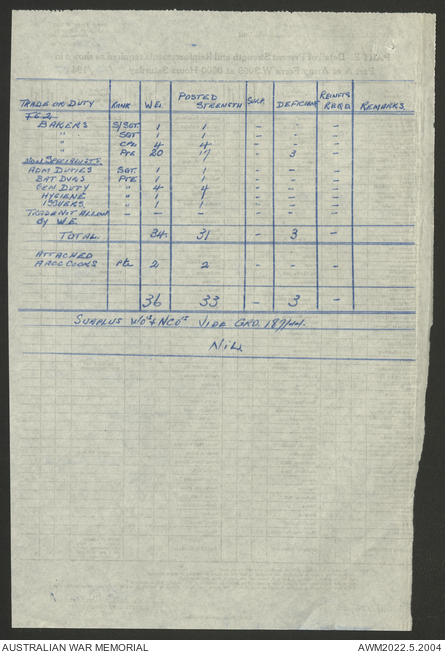 TRADE OR DUTY RANK W.E. POSTED STRENGTH SURP. DEFICIENT REINFTS REQD. REMARKS.
BAKERS S/SGT. 1 1 - - -
" SGT. 1 1 - - -
" CPL 4 4 - - -
" PTE 20 17 - 3 -
NON SPECIALISTS
ADM DUTIES SGT. 1 1 - - -
BAT DUTIES PTE 1 1 - - -
GEN DUTY " 4 4 - - -
HYGIENE " 1 1 - - -
ISSUERS. " 1 1 - - -
TRADE NOT ALLOW - - - - - -
BY W.E.
TOTAL 34. 31 - 3 -
ATTACHED
AACC COOKS Pte 2 2 - - -
36 33 - 3 -
SURPLUS W/Os & NCOs VIDE GRO. 189/44.
NiL
AUSTRALIAN WAR MEMORIAL
AWM2022.5.2004